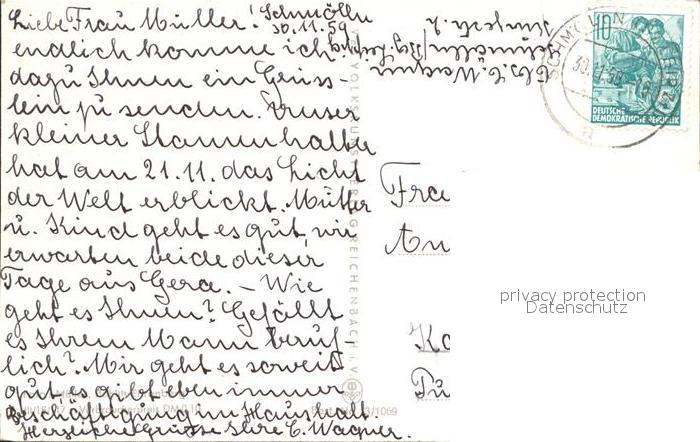 Liebe Frau Müller! Schmölln
30.11.59
endlich komme ich
dazu Ihnen ein Grüss-
lein zu senden. Unser
kleiner Stammhalter
hat am 21.11. das Licht
der Welt erblickt. Mutter
u. Kind geht es gut, wir
erwarten beide dieser
Tage aus Gera. – Wie
geht es Ihnen? Gefällt
es Ihrem Mann beruf-
lich? Mir geht es soweit
gut, es gibt eben immer
Beschäftigung im Haushalt.
Herzliche Grüsse Ihre E. Wagner.
E. Wagner
Schmölln/Bez. Leipzig
SCHMÖLLN
10
DEUTSCHE
DEMOKRATISCHE REPUBLIK
a
VOLKSKUNSTVERLAG REICHENBACH i. V.
Fra
An
privacy protection
Datenschutz